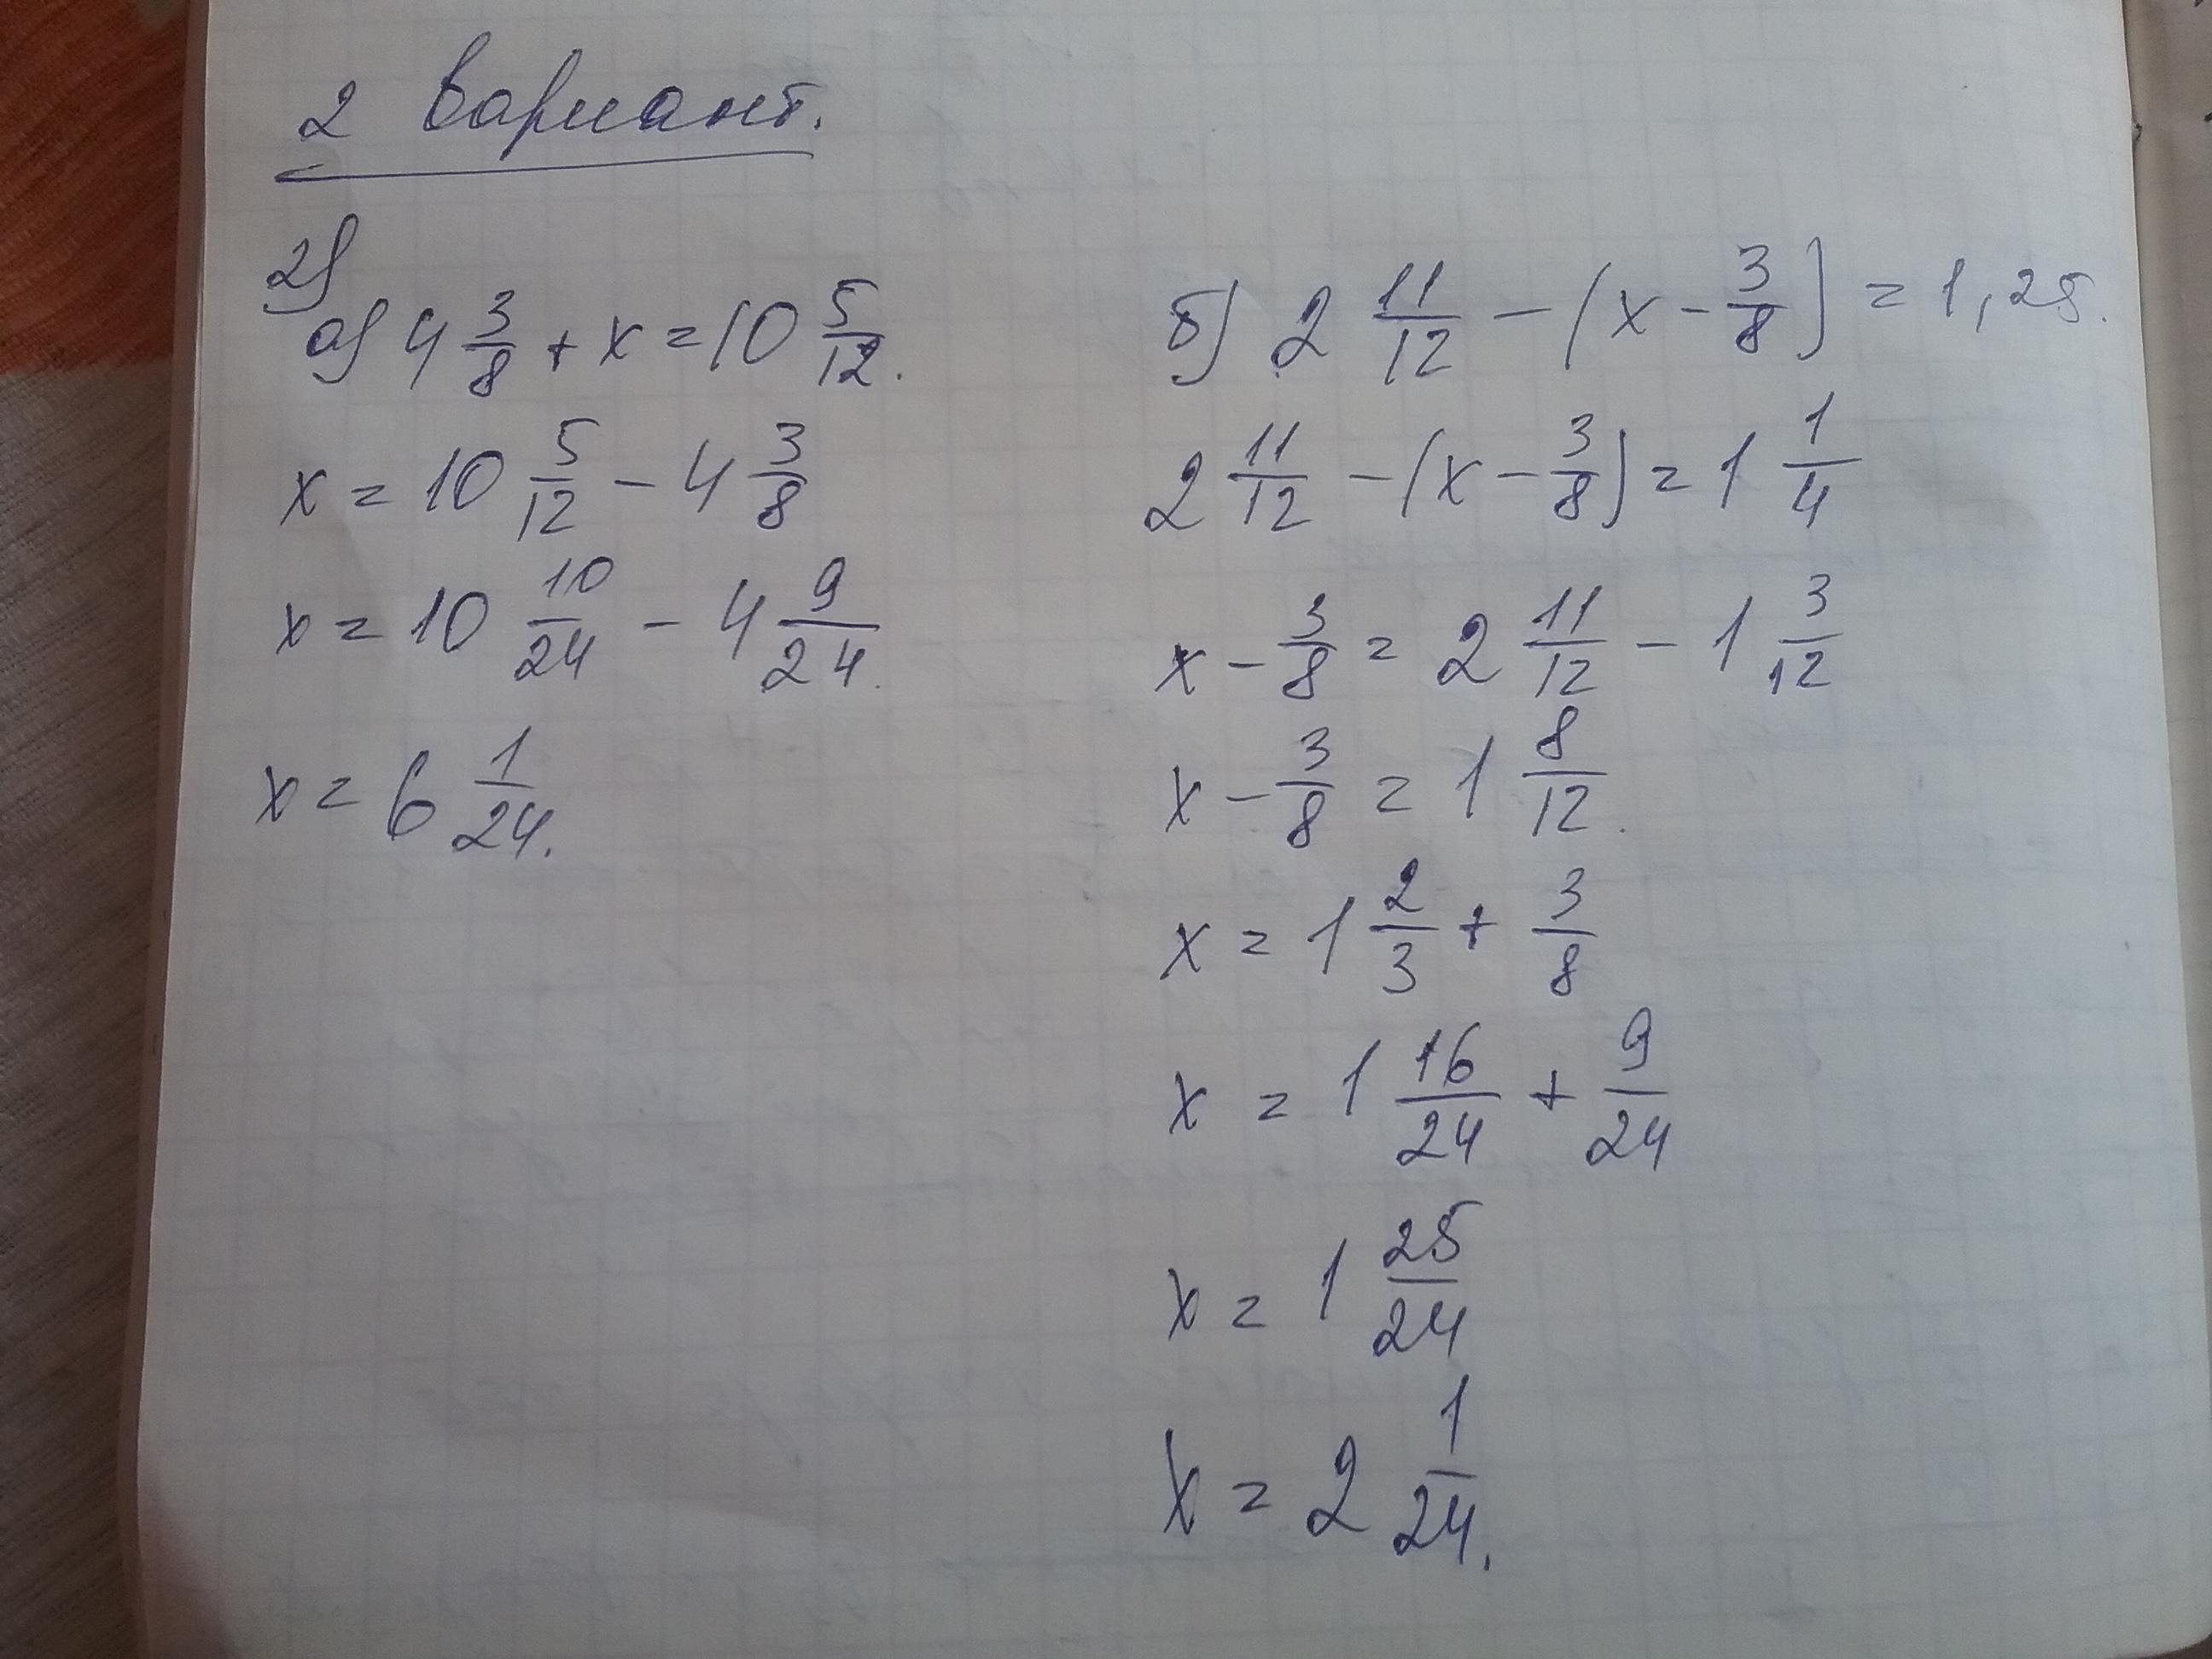 2 вариант.
2)
а) 4 3/8 + x = 10 5/12.
x = 10 5/12 - 4 3/8
x = 10 10/24 - 4 9/24.
x = 6 1/24.
б) 2 11/12 - (x - 3/8) = 1,25.
2 11/12 - (x - 3/8) = 1 1/4
x - 3/8 = 2 11/12 - 1 3/12
x - 3/8 = 1 8/12.
x = 1 2/3 + 3/8
x = 1 16/24 + 9/24
x = 1 25/24
x = 2 1/24.